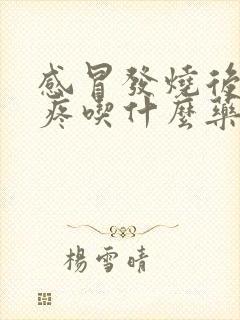 感冒發燒後
疼喫什麼藥
楊雪晴